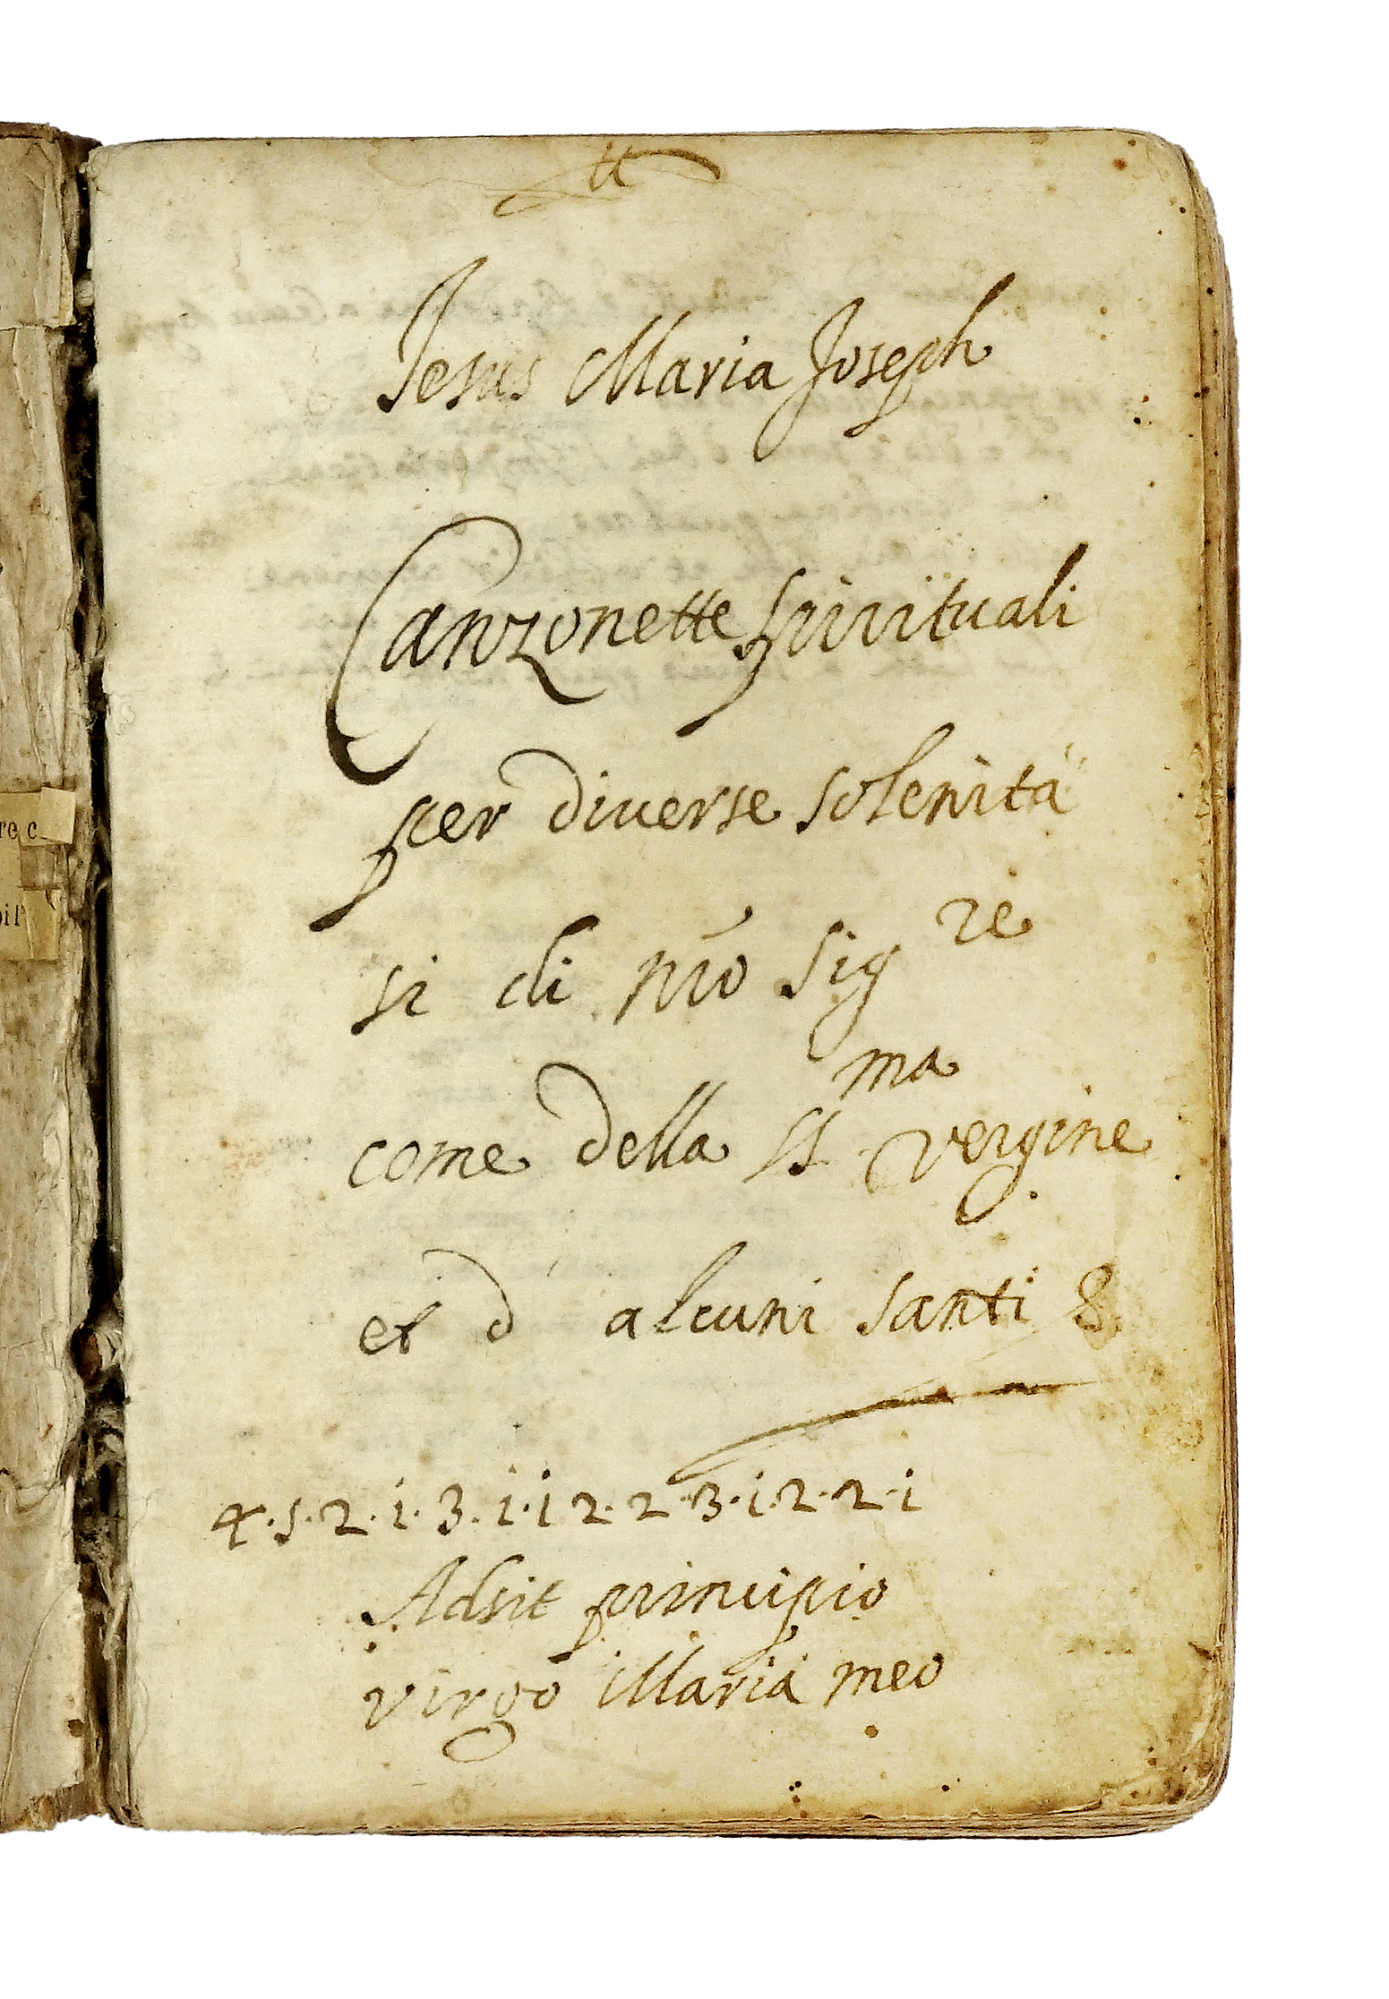 Jesus Maria Joseph
Canzonette spirituali
per diverse solenità
si di nr̃o Sig re
come della SS ma vergine
et d' alcuni santi &
4·5·2·i·3·i·i 2·2·3·i·2·2·i
Adsit principio
virgo Maria meo